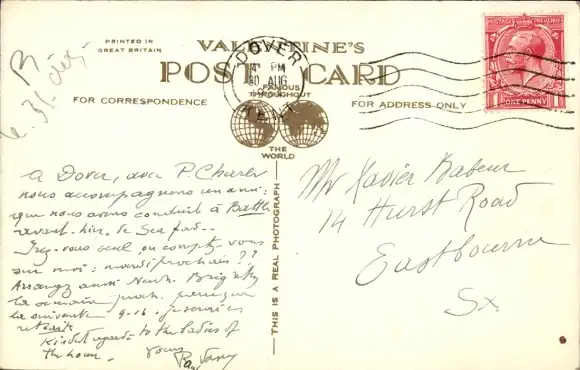 PRINTED IN
GREAT BRITAIN
VALENTINE'S
POST CARD
FAMOUS
THROUGHOUT
THE
WORLD
FOR CORRESPONDENCE
FOR ADDRESS ONLY
DOVER
PM
AUG
KENT
POSTAGE REVENUE
ONE PENNY
THIS IS A REAL PHOTOGRAPH
A Dover, avec P. Charles
nous accompagnons un ami
que nous avons conduit à Battle
avant-hier. le Sea
Irez-vous seul, ou comptez-vous
sur moi: mardi prochain??
Arrangez aussi Brighton
la semaine proch. puisque
la suivante 9-16. je serai en
retraite
Kindest regards to the ladies of
the house. Yours
Mr Xavier
14 Hurst Road
Eastbourne
Sx